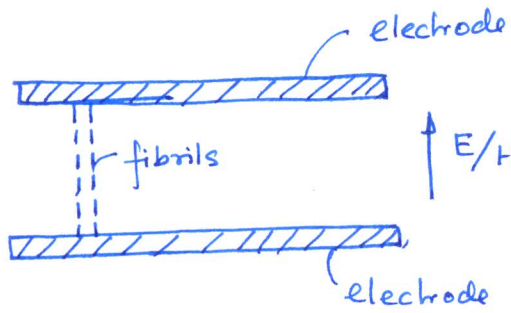 electrode
fibrils
E/H
electrode